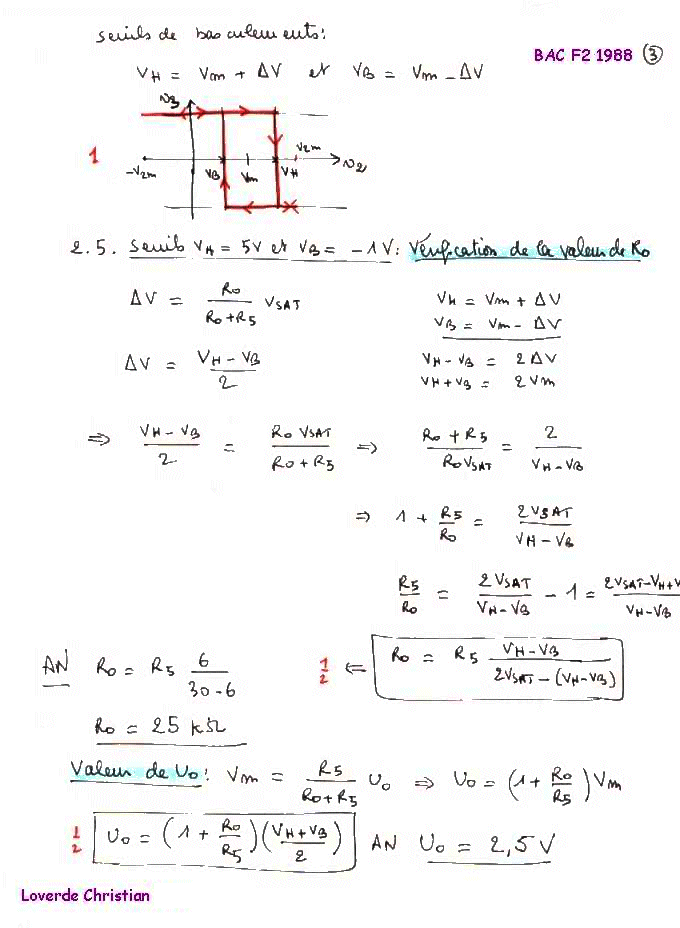 seuils de basculements:
BAC F2 1988 3
VH = Vm + ΔV et VB = Vm - ΔV
v3
1
-V2m VB Vm VH V2m v2
2.5. Seuils VH = 5V et VB = -1V: Vérification de la valeur de R0
ΔV = R0/(R0+R5) VSAT
VH = Vm + ΔV
VB = Vm - ΔV
ΔV = (VH - VB)/2
VH - VB = 2ΔV
VH + VB = 2Vm
⇒ (VH - VB)/2 = R0 VSAT/(R0 + R5) ⇒ (R0 + R5)/(R0 VSAT) = 2/(VH - VB)
⇒ 1 + R5/R0 = 2VSAT/(VH - VB)
R5/R0 = 2VSAT/(VH - VB) - 1 = (2VSAT-VH+V/(VH-VB)
AN R0 = R5 6/(30-6)
1/2 ⇐ R0 = R5 (VH-VB)/(2VSAT - (VH-VB))
R0 = 25 kΩ
Valeur de U0: Vm = R5/(R0+R5) U0 ⇒ U0 = (1 + R0/R5) Vm
1/2 U0 = (1 + R0/R5) ((VH+VB)/2) AN U0 = 2,5V
Loverde Christian